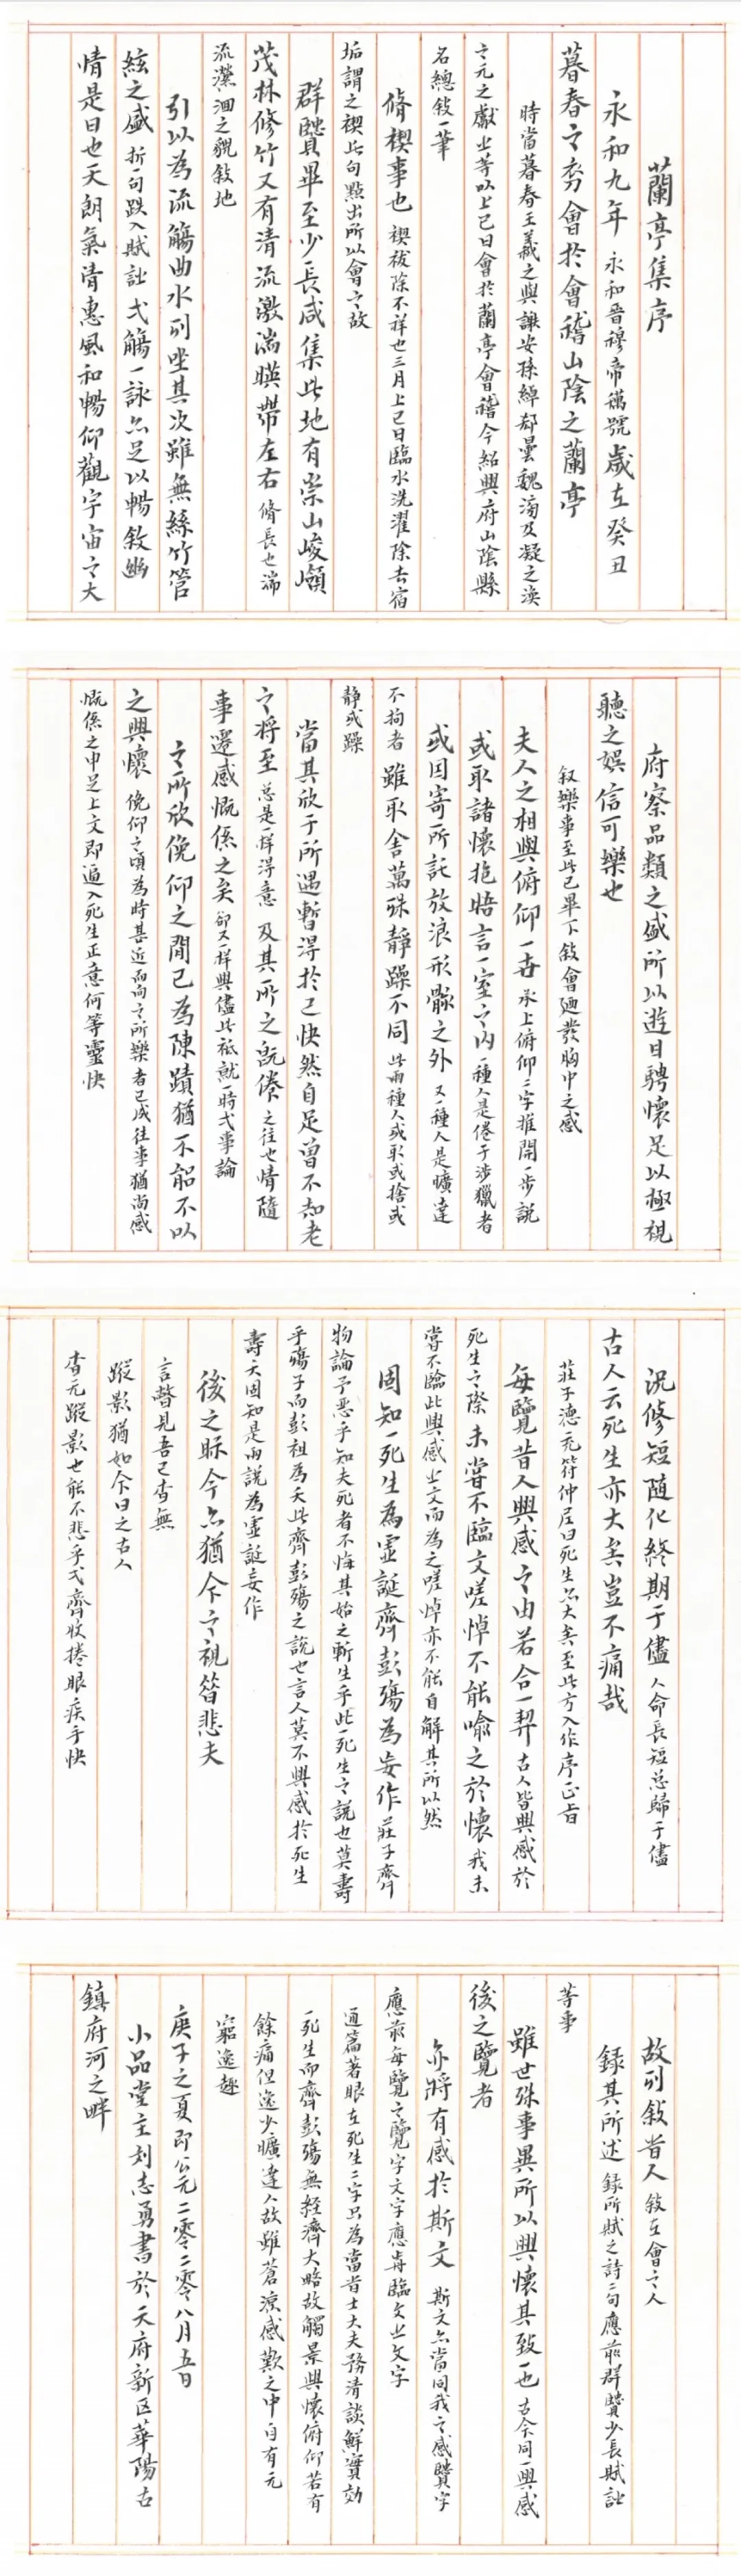 蘭亭集序
永和九年 永和晉穆帝禩號 歲在癸丑
暮春之初會於會稽山陰之蘭亭
時當暮春王羲之與謝安孫綽郄曇魏滂及凝之渙
之元之獻之等以上巳日會於蘭亭會稽今紹興府山陰縣
名總敍一筆
脩禊事也 禊祓除不祥也三月上巳日臨水洗濯除去宿
垢謂之禊此句點出所以會之故
群賢畢至少長咸集此地有崇山峻嶺
茂林修竹又有清流激湍暎帶左右 脩長也湍
流瀠洄之貌敍地
引以為流觴曲水列坐其次雖無絲竹管
絃之盛 折一句跌入賦詩 一觴一詠亦足以暢敘幽
情是日也天朗氣清惠風和暢仰觀宇宙之大
府察品類之盛所以遊目騁懷足以極視
聽之娛信可樂也
叙樂事至此已畢下敍會廼發胸中之感
夫人之相與俯仰一世 承上俯仰二字推開一步說
或取諸懷抱晤言一室之內 一種人是倦于涉獵者
或因寄所託放浪形骸之外 又一種人是曠達
不拘者 雖取舍萬殊靜躁不同 此兩種人或取或捨或
靜或躁
當其欣于所遇暫得於己快然自足曾不知老
之將至 总是一样得意 及其所之既倦 之往也情隨
事遷感慨係之矣 卻又一样興儘此祗就一時一事論
之所欣俛仰之閒已為陳蹟猶不能不以
之興懷 俛仰之頃為時甚近而向之所樂者已成往事猶尚感
慨係之申足上文即逼入死生正意何等靈快
況修短随化終期于儘 人命長短总歸于儘
古人云死生亦大矣豈不痛哉
莊子德充符仲尼曰死生亦大矣至此方入作序正旨
每覽昔人興感之由若合一契 古人皆興感於
死生之際 未嘗不臨文嗟悼不能喻之於懷 我未
嘗不臨此興感之文而為之嗟悼亦不能自解其所以然
固知一死生為虛誕齊彭殤為妄作 莊子齊
物論予惡乎知夫死者不悔其始之蘄生乎此一死生之說也莫壽
乎殤子而彭祖為夭此齊彭殤之說也言人莫不興感於死生
壽夭固知是兩說為虛誕妄作
後之眎今亦猶今之視昝悲夫
言瞥見吾已杳無
蹤影猶如今日之古人
杳无蹤影也能不悲乎一齊收捲眼疾手快
故列敍昔人 敍在會之人
録其所述 録所賦之詩二句應前群賢少長賦詩
等事
雖世殊事異所以興懷其致一也 古今同一興感
後之覽者
亦將有感於斯文 斯文亦當同我之感覽字
應前每覽之覽字文字應每臨文之文字
通篇著眼在死生二字只為當昔士大夫務清談鮮實効
一死生而齊彭殤無經濟大略故觸景興懷俯仰若有
餘痛但逸少曠達人故雖蒼涼感歎之中自有无
窮逸趣
庚子之夏即公元二零二零八月五日
小品堂主刘志勇書於天府新区華陽古
鎮府河之畔